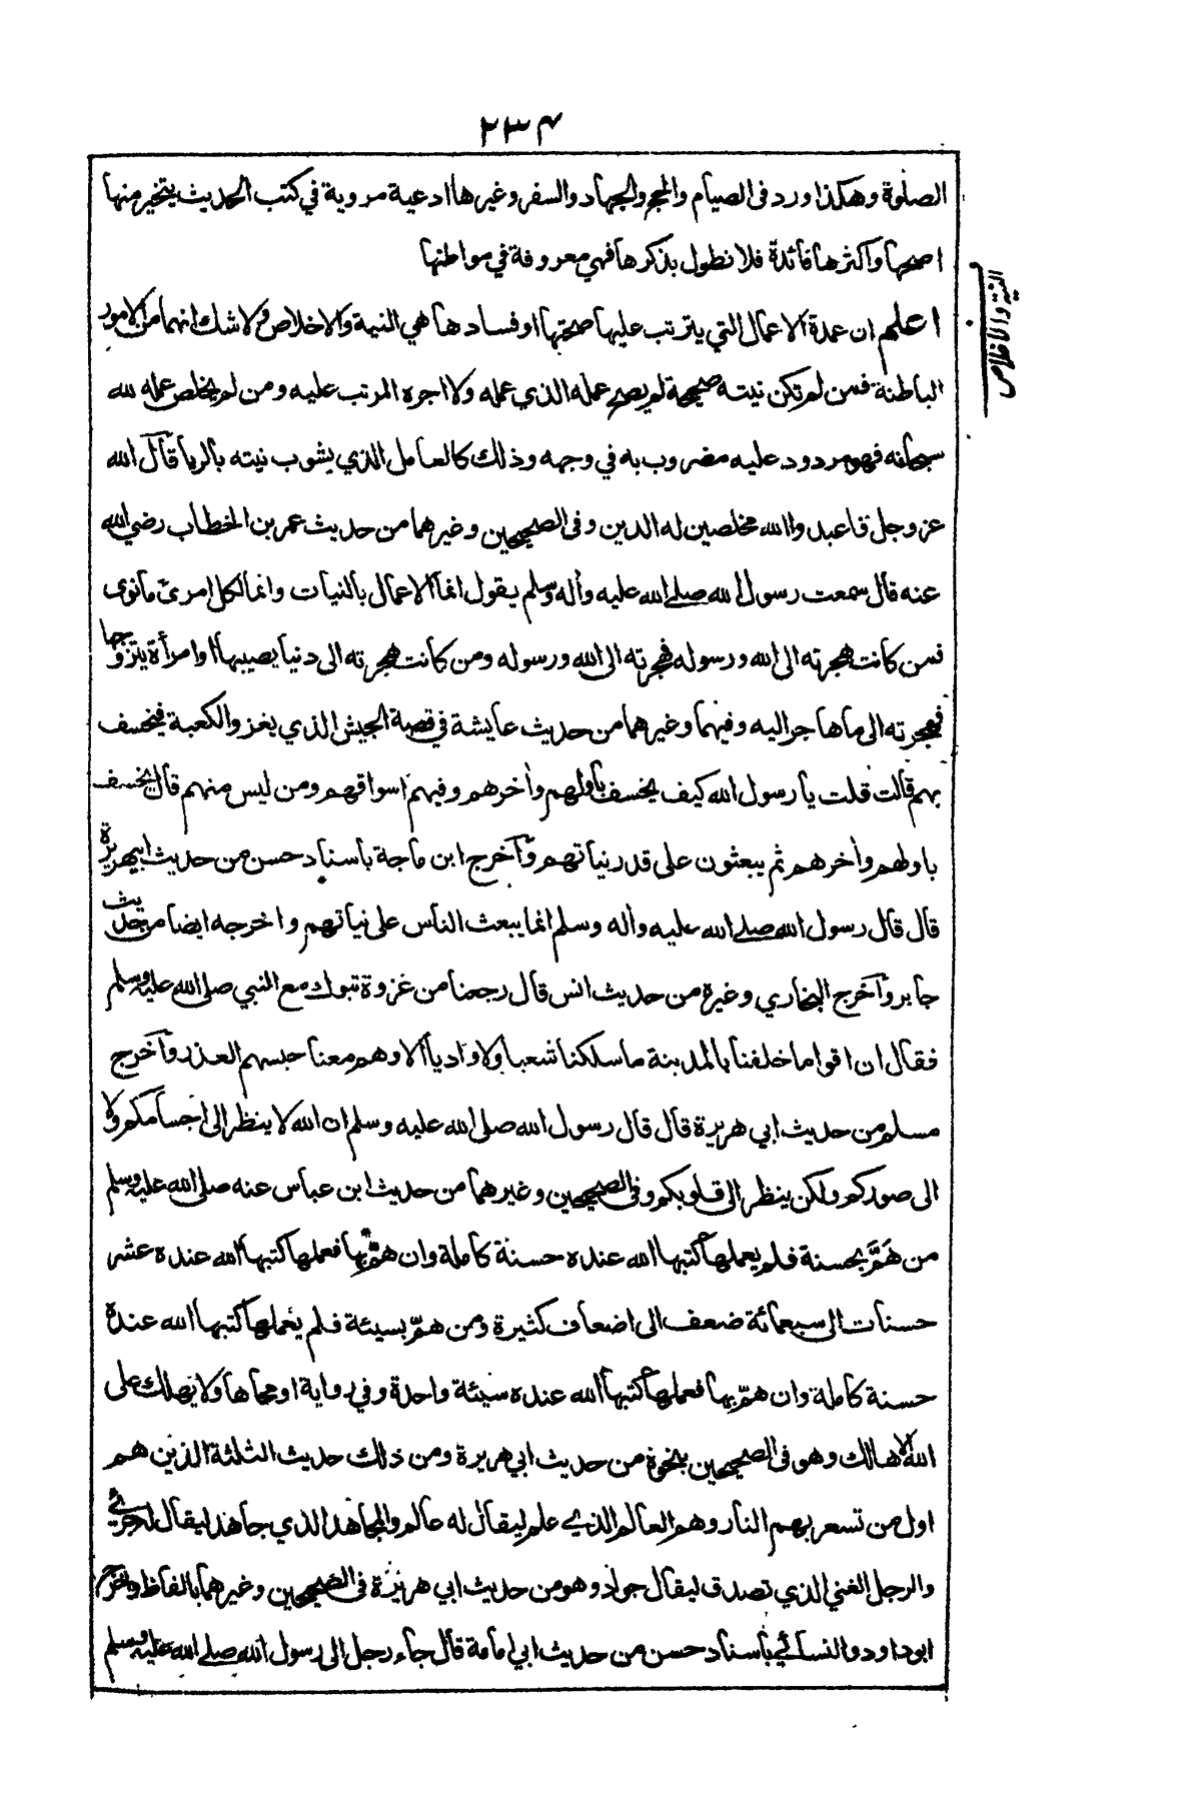 ٢٣٤
الصلوة وهكذا ورد فى الصيام والحج والجهاد والسفر وغيرها ادعية مروية في كتب الحديث يتخير منها
اصحها واكثرها فائدة فلا نطول بذكرها فهي معروفة في مواطنها
النية والاخلاص
اعلم ان عمدة الاعمال التي يترتب عليها صحتها او فسادها هي النية والاخلاص ولا شك انهما من الامور
الباطنة فمن لم تكن نيته صحيحة لم يصح عمله الذي عمله ولا اجره المرتب عليه ومن لم يخلص عمله لله
سبحانه فهو مردود عليه مضروب به في وجهه وذلك كالعامل الذي يشوب نيته بالريا قال الله
عز وجل فاعبدوا الله مخلصين له الدين وفى الصحيحين وغيرهما من حديث عمر بن الخطاب رضي الله
عنه قال سمعت رسول الله صلے الله عليه وأله وسلم يقول انما الاعمال بالنيات وانما لكل امرئ ما نوى
فمن كانت هجرته الى الله ورسوله فهجرته الى الله ورسوله ومن كانت هجرته الى دنيا يصيبها او امرأة يتزوجها
فهجرته الى ما هاجر اليه وفيهما وغيرهما من حديث عايشة في قصة الجيش الذي يغزو الكعبة فيخسف
بهم قالت قلت يا رسول الله كيف يخسف باولهم وأخرهم وفيهم اسواقهم ومن ليس منهم قال يخسف
باولهم وأخرهم ثم يبعثون على قدر نياتهم وأخرج ابن ماجة باسناد حسن من حديث ابيهريرة
قال قال رسول الله صلے الله عليه وأله وسلم انما يبعث الناس على نياتهم واخرجه ايضا من حديث
جابر وأخرج البخاري وغيره من حديث انس قال رجعنا من غزوة تبوك مع النبي صلى الله عليه وسلم
فقال ان اقواما خلفنا بالمدينة ما سلكنا شعبا ولا واديا الا وهم معنا حبسهم العذر وأخرج
مسلم من حديث ابي هريرة قال قال رسول الله صلى الله عليه وسلم ان الله لا ينظر الى اجسامكم ولا
الى صوركم ولكن ينظر الى قلوبكم وفى الصحيحين وغيرهما من حديث ابن عباس عنه صلى الله عليه وسلم
من هَمَّ بحسنة فلم يعملها كتبها الله عنده حسنة كاملة وان همّ بها فعملها كتبها الله عنده عشر
حسنات الى سبعمائة ضعف الى اضعاف كثيرة ومن همّ بسيئة فلم يعملها كتبها الله عنده
حسنة كاملة وان همّ بها فعملها كتبها الله عنده سيئة واحدة وفي رواية او محاها ولا يهلك على
الله الا هالك وهو فى الصحيحين بنحوه من حديث ابي هريرة ومن ذلك حديث الثلثة الذين هم
اول من تسعر بهم النار وهم العالم الذي علم ليقال له عالم والمجاهد الذي جاهد ليقال له جرئ
والرجل الغني الذي تصدق ليقال جواد وهو من حديث ابي هريرة فى الصحيحين وغيرهما بالفاظ واخرج
ابوداود والنسائي باسناد حسن من حديث ابي امامة قال جاء رجل الى رسول الله صلے الله عليه وسلم